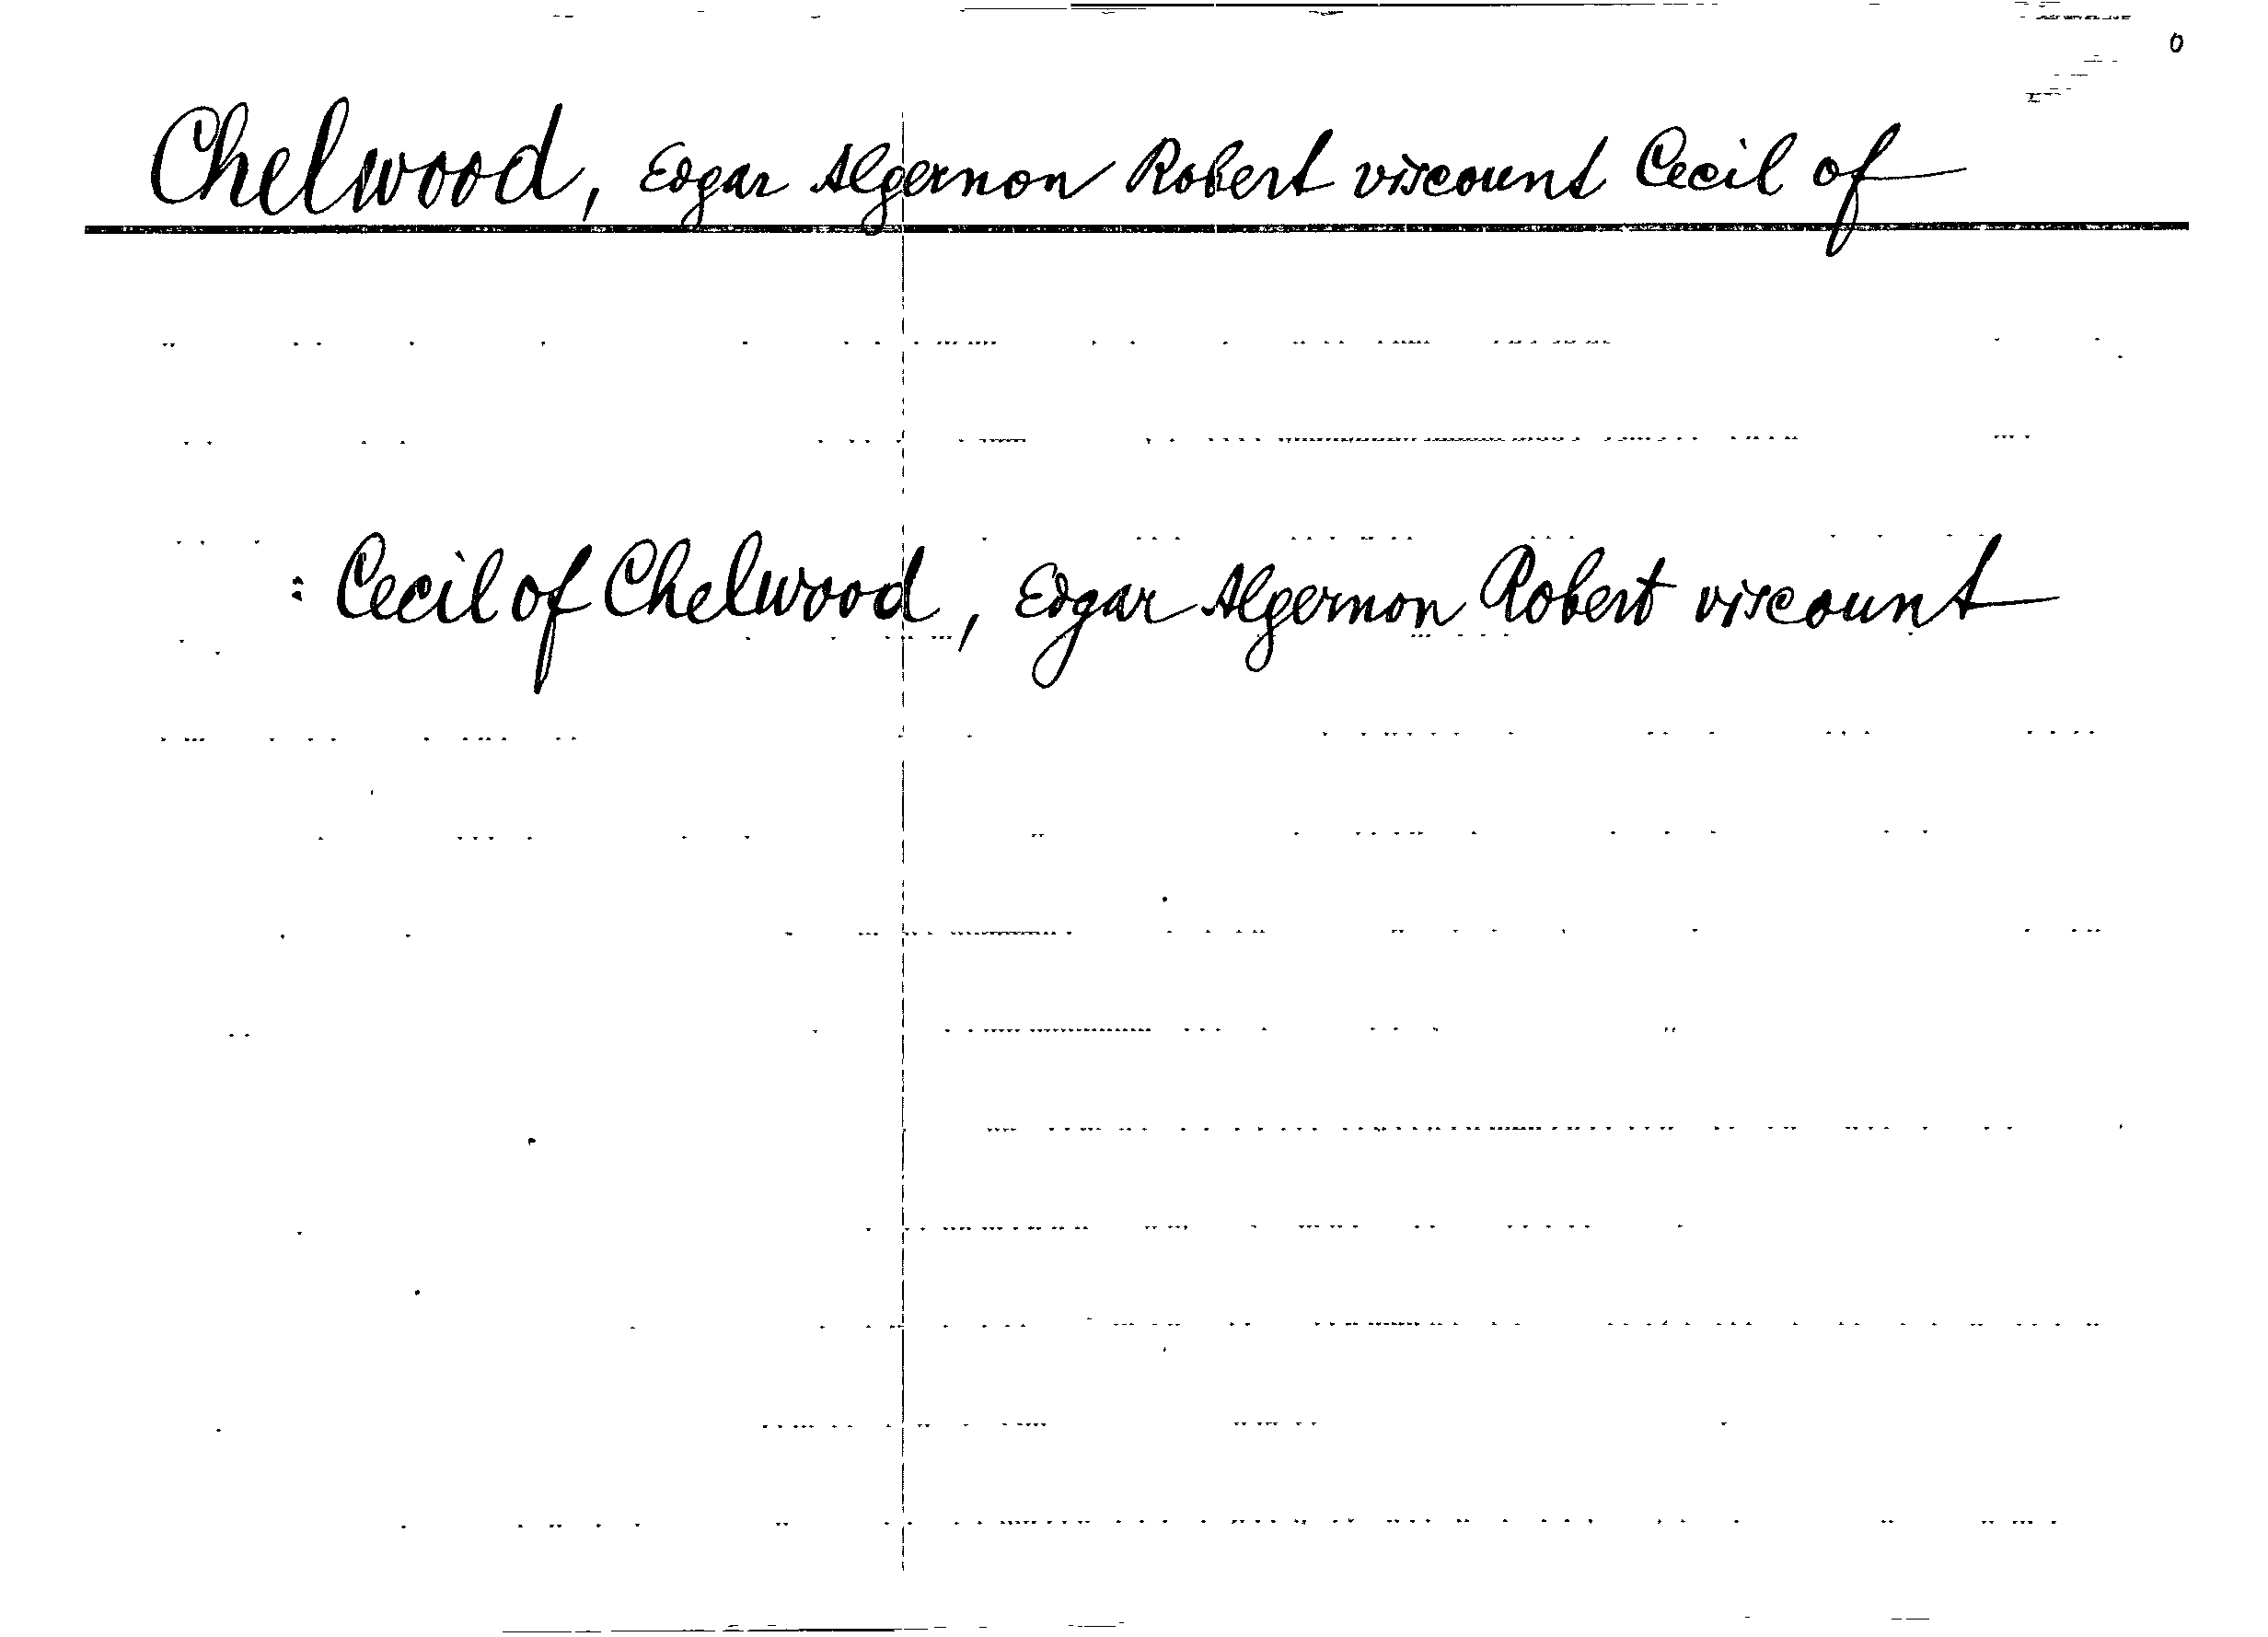 Chelwood, Edgar Algernon Robert viscount Cecil of
: Cecil of Chelwood, Edgar Algernon Robert viscount